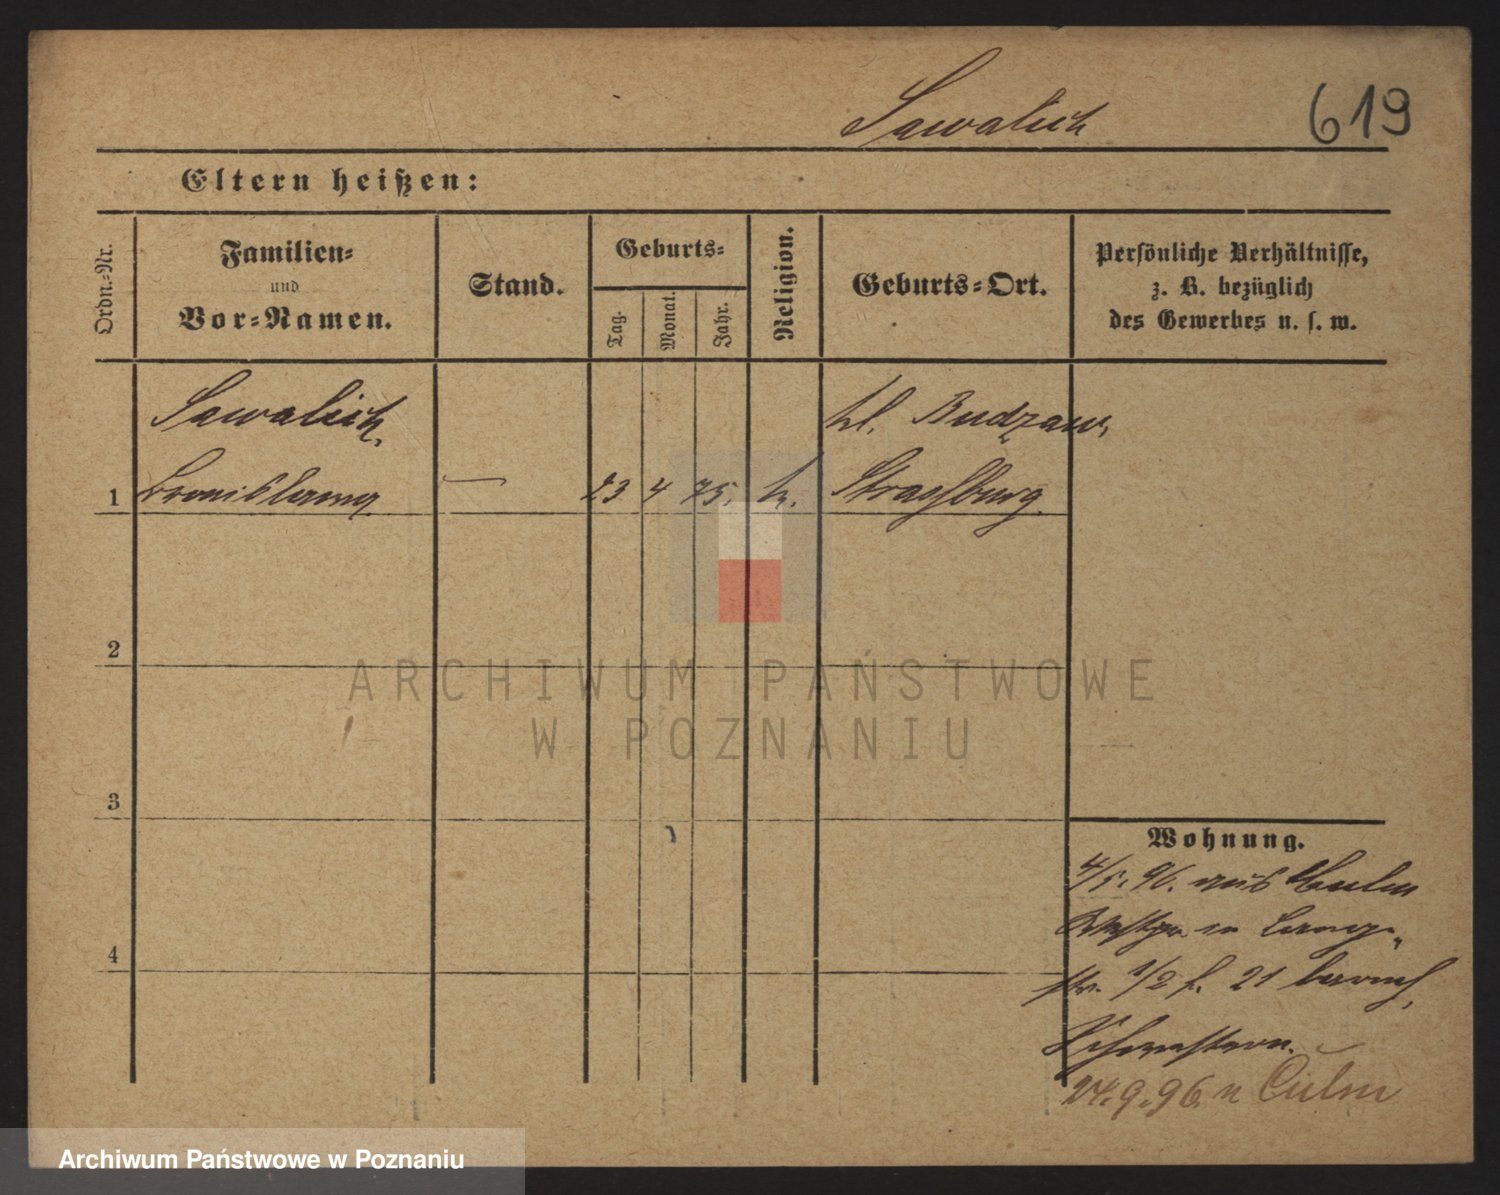 Sawalich
619
Eltern heißen:
Ordn.-Nr.
Familien-
und
Vor-Namen.
Stand.
Geburts-
Tag.
Monat.
Jahr.
Religion.
Geburts-Ort.
Persönliche Verhältnisse,
z. B. bezüglich
des Gewerbes u. s. w.
Sawalich,
kl. Budzaw,
1 Bronislawa — 23 4 75. k. Strassburg.
2
3
4
Wohnung.
4/5. 96. aus Culm
Westpr. in Lang-
str. 1/2 b. 21 barmh,
Schwestern.
24.9.96. n Culm
ARCHIWUM PAŃSTWOWE
W POZNANIU
Archiwum Państwowe w Poznaniu